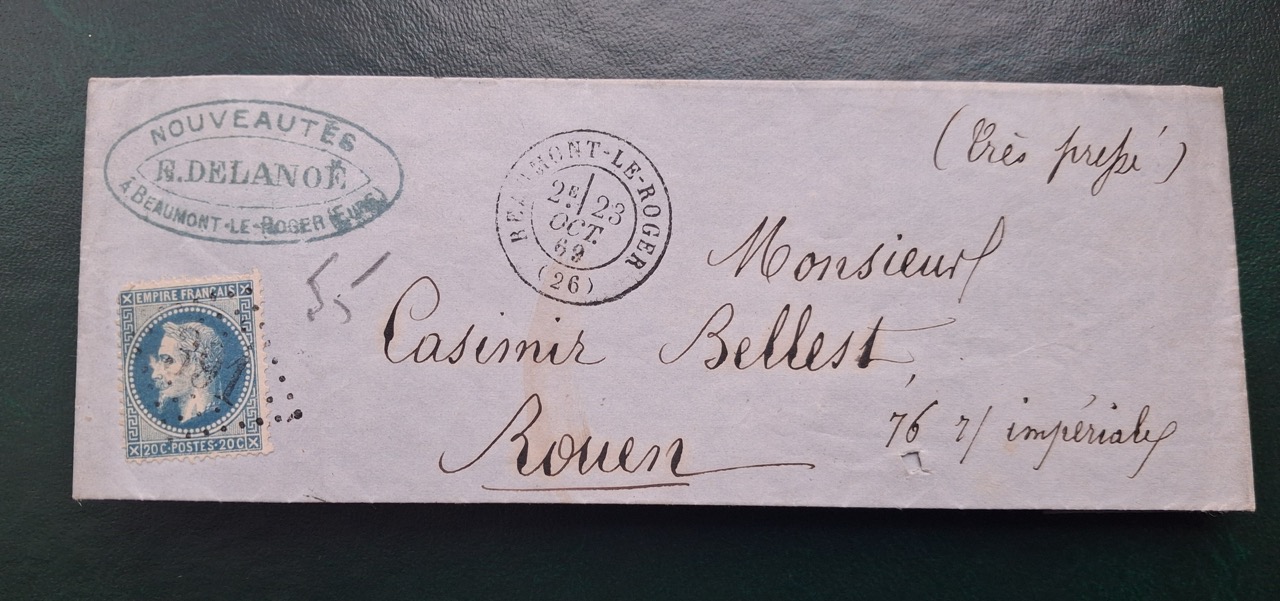 NOUVEAUTÉS
E. DELANOË
À BEAUMONT-LE-ROGER (EURE)
BEAUMONT-LE-ROGER
2E 23
OCT.
69
(26)
(très pressé)
55
Monsieur
Casimir Bellest,
Rouen
76 r/ impériale
EMPIRE FRANÇAIS
20C·POSTES·20C